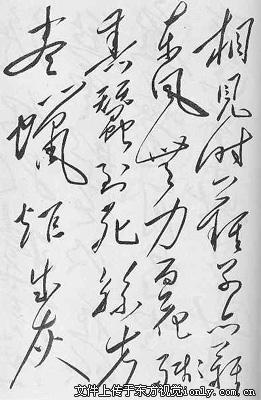 相見时難别亦難
东风無力百花残
春蠶到死絲方
盡蠟炬成灰
文件上传于东方视觉ionly.com.cn